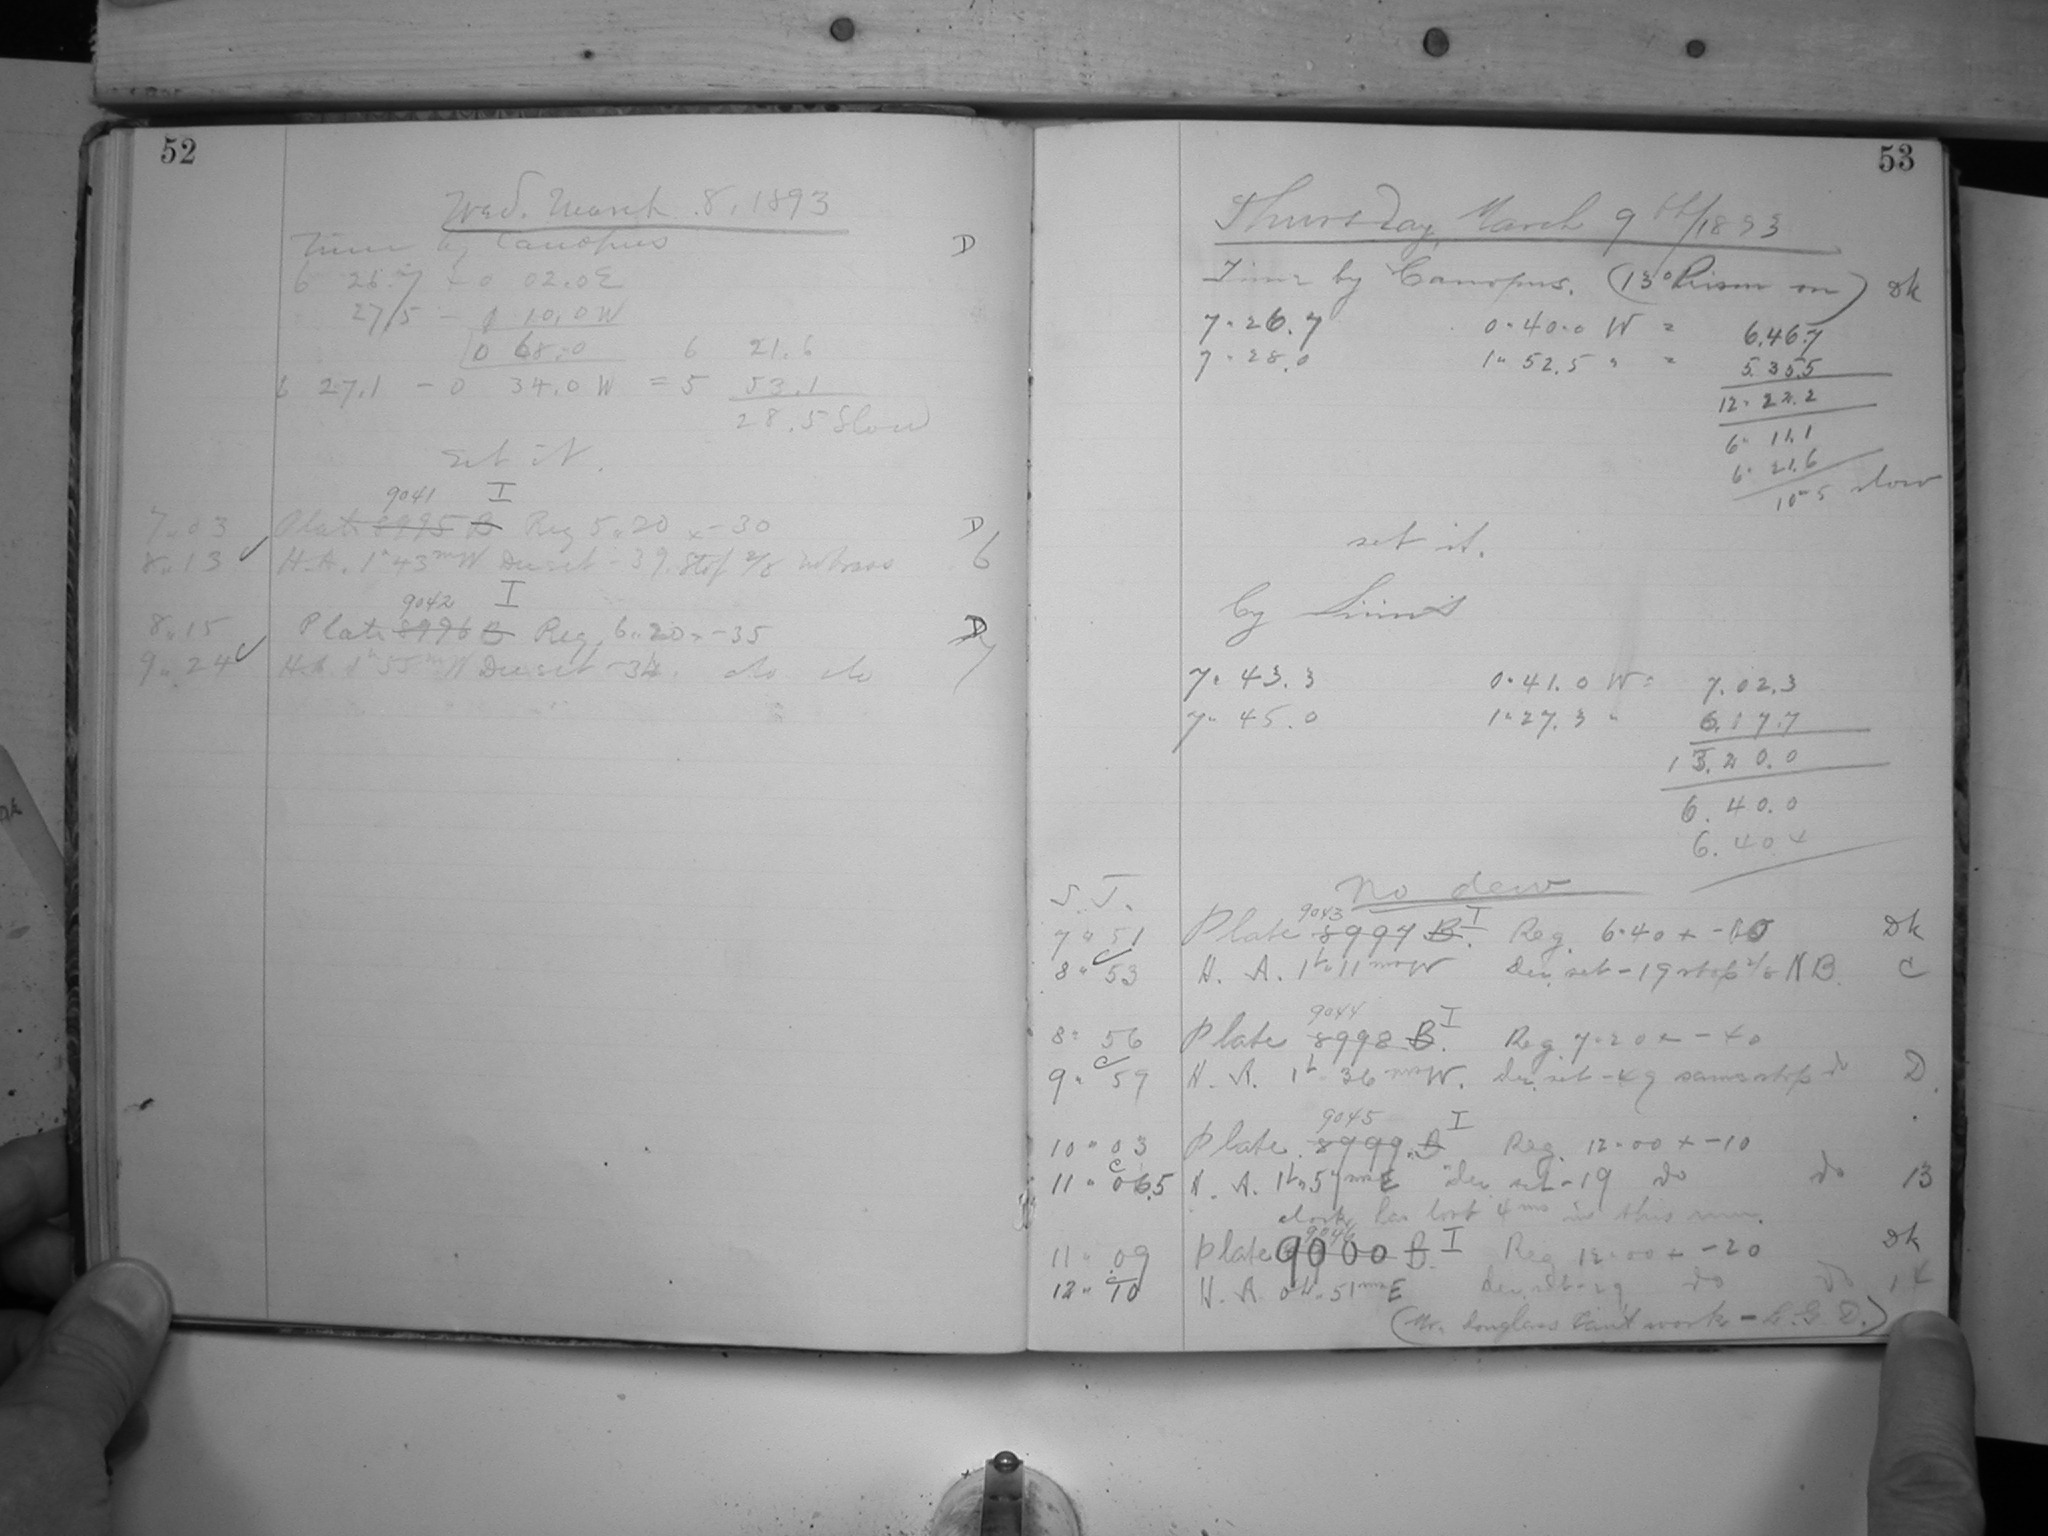 52
Wed. March 8, 1893
Time by Canopus D
6 26.7 + 0 02.0 E
27.5 - 1 10.0 W
0 68.0 6 21.6
6 27.1 - 0 34.0 W = 5 53.1
28.5 Slow
Set it.
9041 I
7 " 03 Plate 8995 B Reg 5 " 20 x -30 D
8 " 13 H.A. 1h 43m W Dec set -39. Stop 2/8 6
9042 I
8 " 15 Plate 8996 B Reg. 6 " 20 x -35 D
9 " 24 H.A. 1h 55m W Dec set -34. do do 7
53
Thursday, March 9th/1893
Time by Canopus. (13° Prism on) Dk
7 " 26.7 0 " 40.0 W = 6.46.7
7 " 28.0 1 " 52.5 " = 5.35.5
12 " 22.2
6 " 11.1
6 " 21.6
10.5 slow
set it.
by Sirius
7 " 43.3 0 " 41.0 W = 7.02.3
7 " 45.0 1 " 27.3 " 6.17.7
13.20.0
6.40.0
6.40.4
S.T. No dew
9043 I
7 " 51 Plate 8997 B. Reg. 6.40 x -10 Dk
8 " 53 H. A. 1h " 11m W Dec. set -19 stop 2/8 N.B. C
9044 I
8 " 56 Plate 8998 B. Reg. 7.20 x -40
9 " 59 H. A. 1h 36m W. Dec. set -49 same stop do D.
9045 I
10 " 03 Plate 8999 B Reg. 12.00 x -10
11 " 06.5 H. A. 1h " 57m E Dec. set -19 do do 13
clock has lost 4ms in this run.
9046 I
11 " 09 Plate 9000 B. Reg 12.00 x -20 Dk
12 " 10 H. A. 0h " 51m E Dec. set -29 do do 14
(Mr. Douglass can't work - )